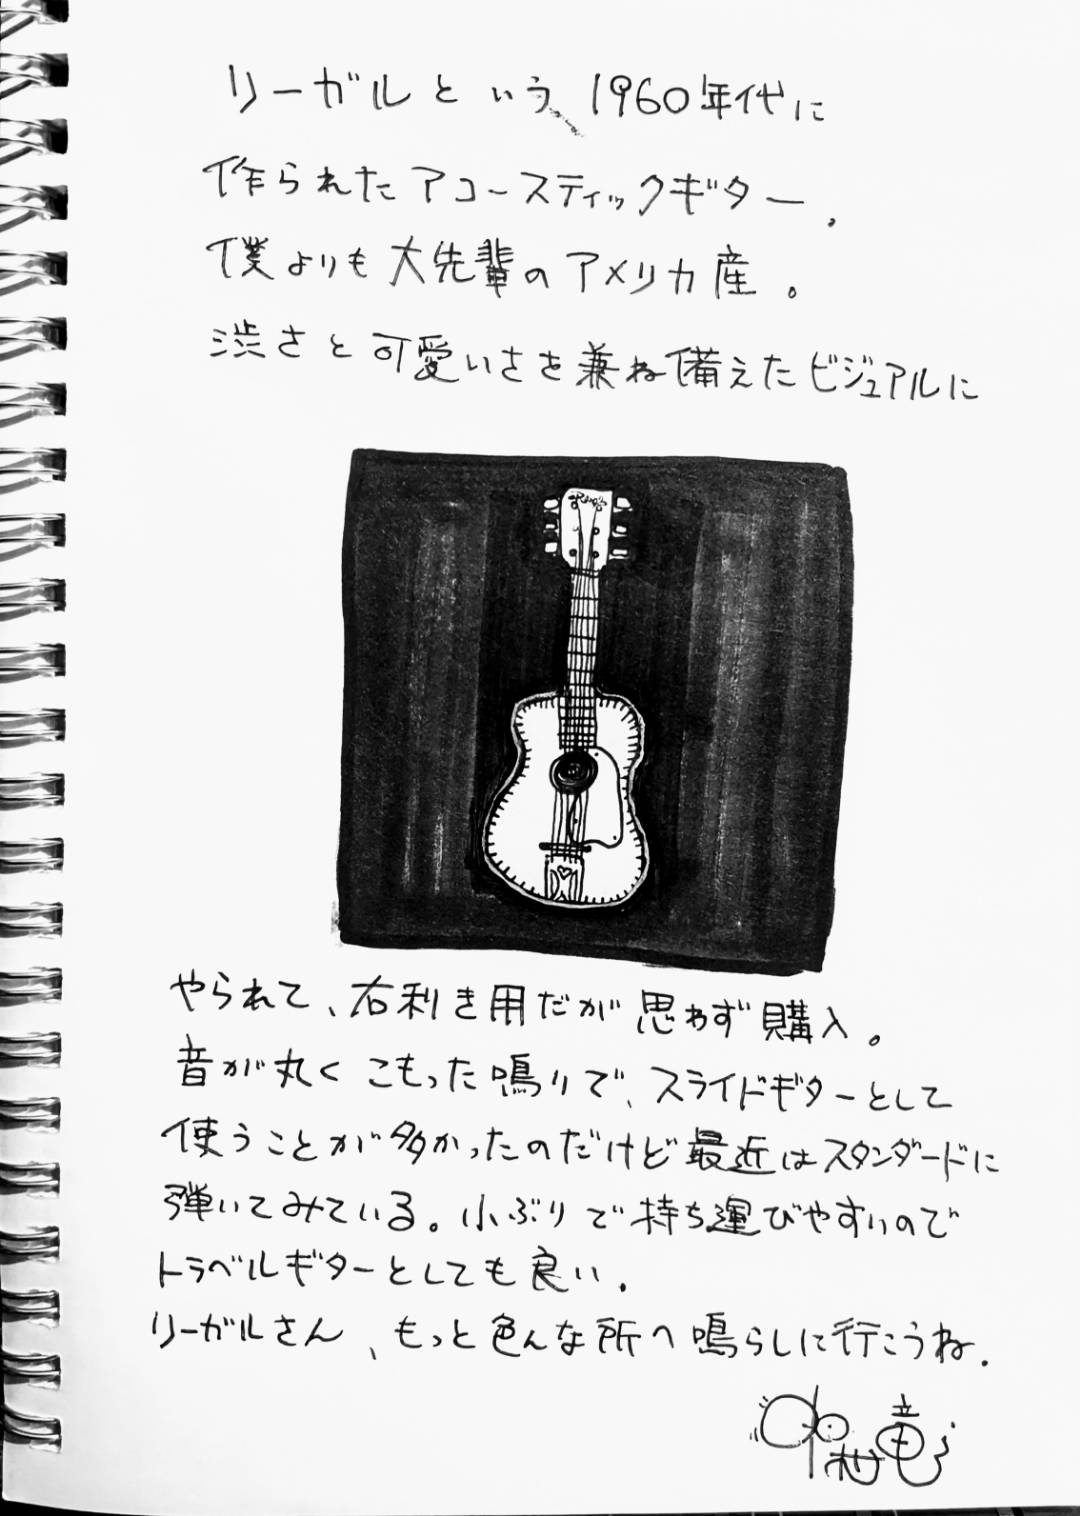 リーガルという、1960年代に
作られたアコースティックギター。
僕よりも大先輩のアメリカ産。
渋さと可愛いさを兼ね備えたビジュアルに
やられて、右利き用だが思わず購入。
音が丸くこもった鳴りで、スライドギターとして
使うことが多かったのだけど最近はスタンダードに
弾いてみている。小ぶりで持ち運びやすいので
トラベルギターとしても良い。
リーガルさん、もっと色んな所へ鳴らしに行こうね。